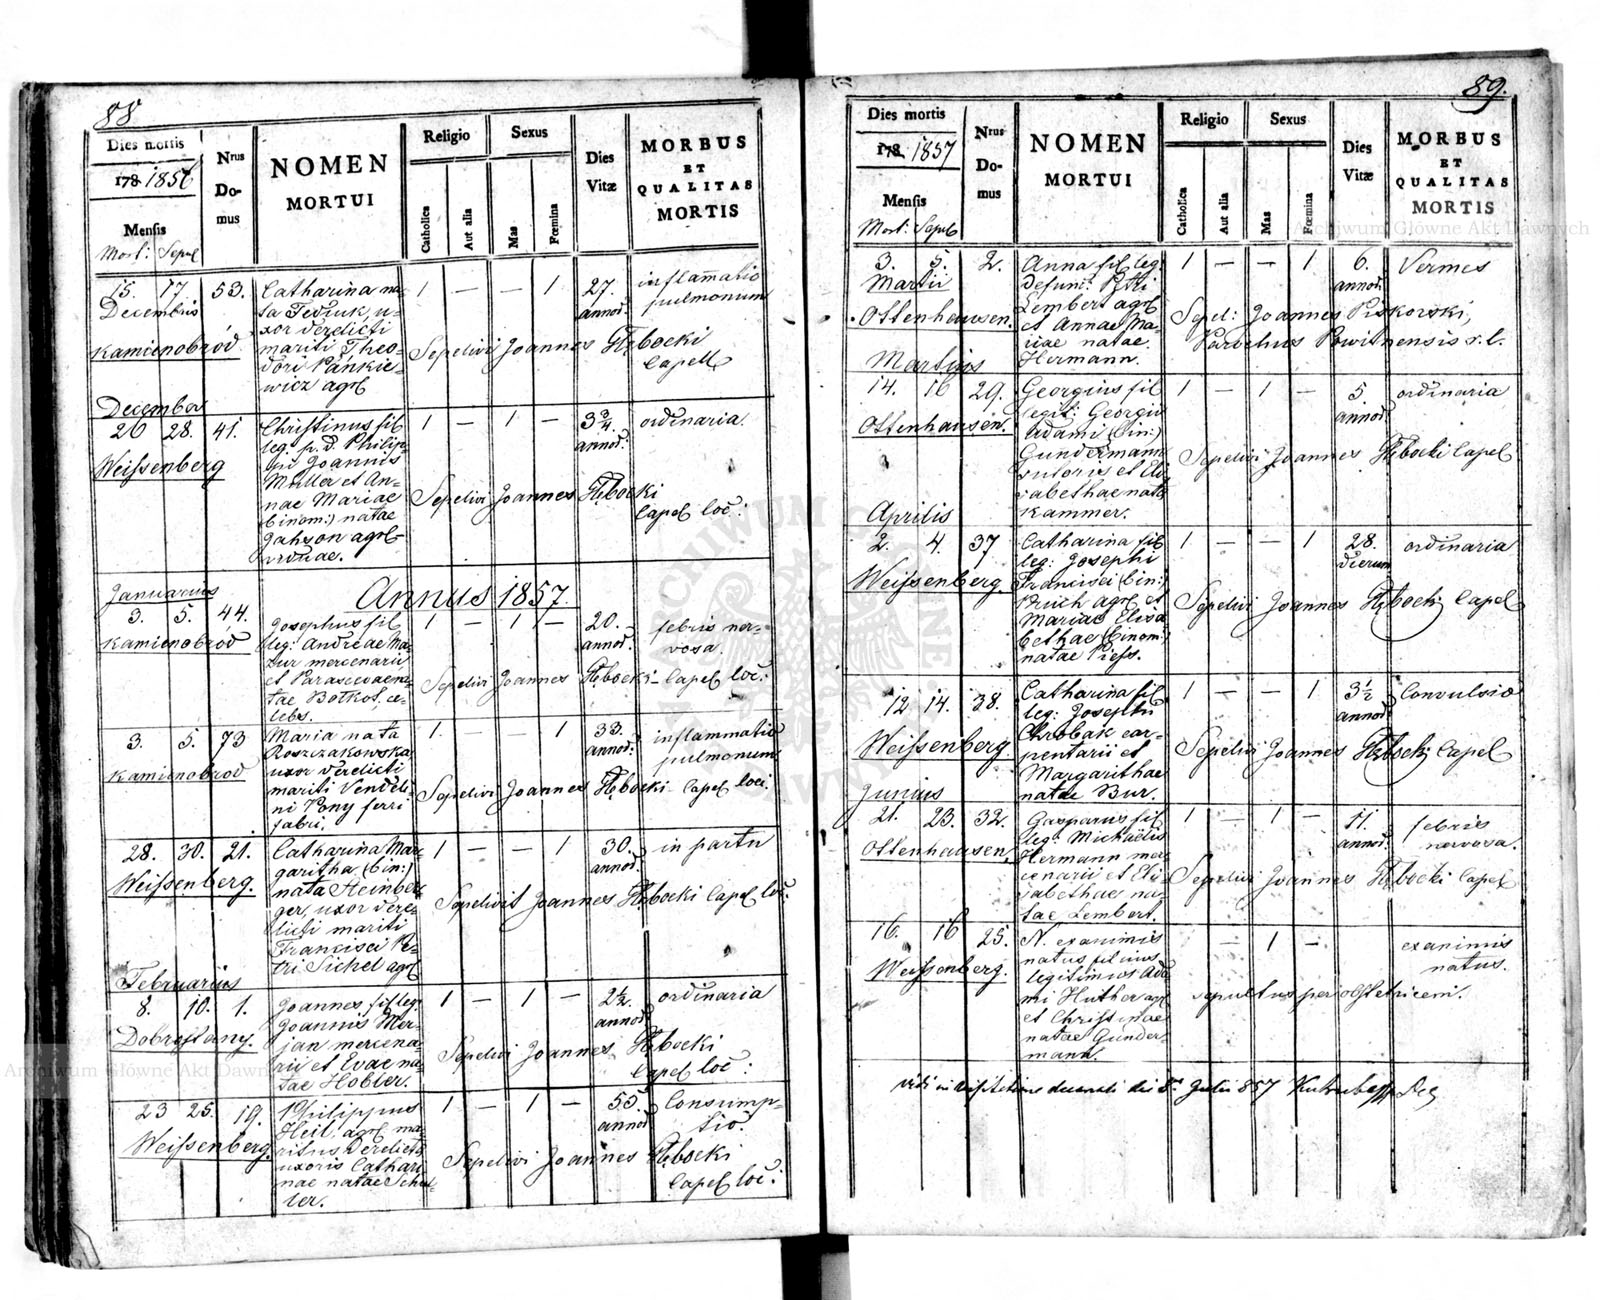 88
Dies mortis
178 1856
Mensis
Mort: Sepul
Nrus
Do-
mus
NOMEN
MORTUI
Religio
Catholica
Aut alia
Sexus
Mas
Fœmina
Dies
Vitæ
MORBUS
ET
QUALITAS
MORTIS
15. 17. 53.
Decembris
Kamienobród
Catharina na-
ta Fediuk, u-
xor derelicti
mariti Theo-
dori Pankie-
wicz agrl
1 — — 1
27.
annor.
inflamatio
pulmonum
Sepelivi Joannes Głębocki
Capell
December
26 28. 41.
Weissenberg
Christinus fil
leg. p. d. Philip-
pi Joannis
Müller et An-
nae Mariae
(binom:) natae
Jahson agrl
viduae.
1 — 1 —
3 3/4
annor:
ordinaria.
Sepelivi Joannes Głębocki
Capel loc:
Annus 1857.
Januarius
3. 5. 44.
Kamienobrod
Josephus fil
leg: Andreae Ma-
zur mercenarii
et Parascevae na-
tae Botkot ce-
lebs.
1 — 1 —
20.
annor:
febris ner-
vosa.
Sepelivi Joannes Głębocki Capel loc:
3. 5. 73
Kamienobrod
Maria nata
Roszczakowska
uxor derelicti
mariti Vendeli-
ni Pony ferri
fabri,
1. — — 1
33.
annor:
inflammatio
pulmonum
Sepelivi Joannes Głębocki Capel loci.
28. 30. 21.
Weissenberg.
Catharina Mar-
garitha (bin:)
nata Heinber-
ger, uxor dere-
licti mariti
Francisci Pe-
tri Sichel agrl
1 — — 1
30.
annor:
in partu
Sepelivit Joannes Głębocki Capel loc:
Februarius
8. 10. 1.
Dobrostany.
Joannes fil leg:
Joannis Mer-
jan mercena-
rii et Evae na-
tae Hobler.
1 — 1 —
2 1/2.
annor:
ordinaria
Sepelivi Joannes Głębocki
Capel loc:
23 25. 19.
Weissenberg.
Philippus
Heil, agrl ma-
ritus derelictae
uxoris Cathari-
nae natae Schul-
ler.
1 — 1 —
55.
annor
Consump-
tio.
Sepelivi Joannes Głębocki
Capel loc:
89.
Dies mortis
178 1857
Mensis
Mort: Sepul
Nrus
Do-
mus
NOMEN
MORTUI
Religio
Catholica
Aut alia
Sexus
Mas
Fœmina
Dies
Vitæ
MORBUS
ET
QUALITAS
MORTIS
3. 5. 2.
Martii
Ottenhausen.
Anna fil leg:
defunc:
Lembert agrl
et Annae Ma-
riae natae
Hermann.
1 — — 1
6.
annor.
Vermes
Sepel: Joannes Piskorski,
Parochus r. l.
Martius
14. 16 29.
Ottenhausen.
Georgius fil
legit: Georgii
Adami (bin:)
Gundermann
sutoris et Eli-
sabethae nata
Kammer.
1 — 1 —
5.
annor.
ordinaria
Sepelivi Joannes Głębocki Capel
Aprilis
2. 4. 37
Weissenberg.
Catharina fil
leg: Josephi
Francisci (bin:)
Pruch agrl et
Mariae Elisa-
bethae (binom:)
natae Piess.
1 — — 1
28.
dierum
ordinaria
Sepelivi Joannes Głębocki Capel
12 14. 38.
Weissenberg.
Catharina fil
leg: Josephi
Chrobak car-
pentarii et
Margarithae
natae Bur.
1 — — 1
3 1/2
annor
Convulsio
Sepelivi Joannes Głębocki Capel
Junius
21. 23. 32.
Ottenhausen
Gasparus fil
leg: Michaëlis
Hermann mer-
cenarii et Eli-
sabethae na-
tae Lembert.
1 — 1 —
11.
annor.
febris
nervosa.
Sepelivi Joannes Głębocki Capel
16. 16 25.
Weissenberg.
N. exanimis
natus filius
legitimus Ada-
mi Huther agr
et Christinae
natae Gunder-
mann.
— 1 —
exanimis
natus.
sepultus per obstetricem.
vidi in visitatione decanali die Julii 857
Archiwum Główne Akt Dawnych
Archiwum Główne Akt Dawnych
ARCHIWUM GŁÓWNE AKT DAWNYCH